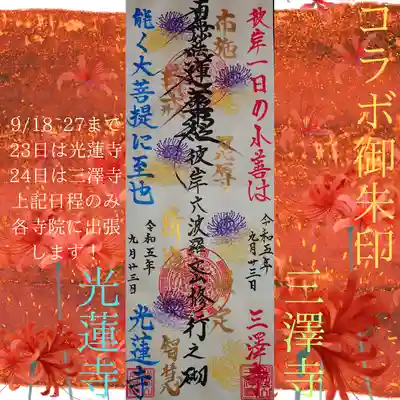 コラボ御朱印
三澤寺
彼岸一日の小善は
令和五年
九月廿三日
三澤寺
布施
南無妙法蓮華経
彼岸六波羅蜜修行之砌
智慧
能く大菩提に至也
令和五年
九月廿三日
光蓮寺
9/18~27まで
23日は光蓮寺
24日は三澤寺
上記日程のみ
各寺院に出張
します!
光蓮寺